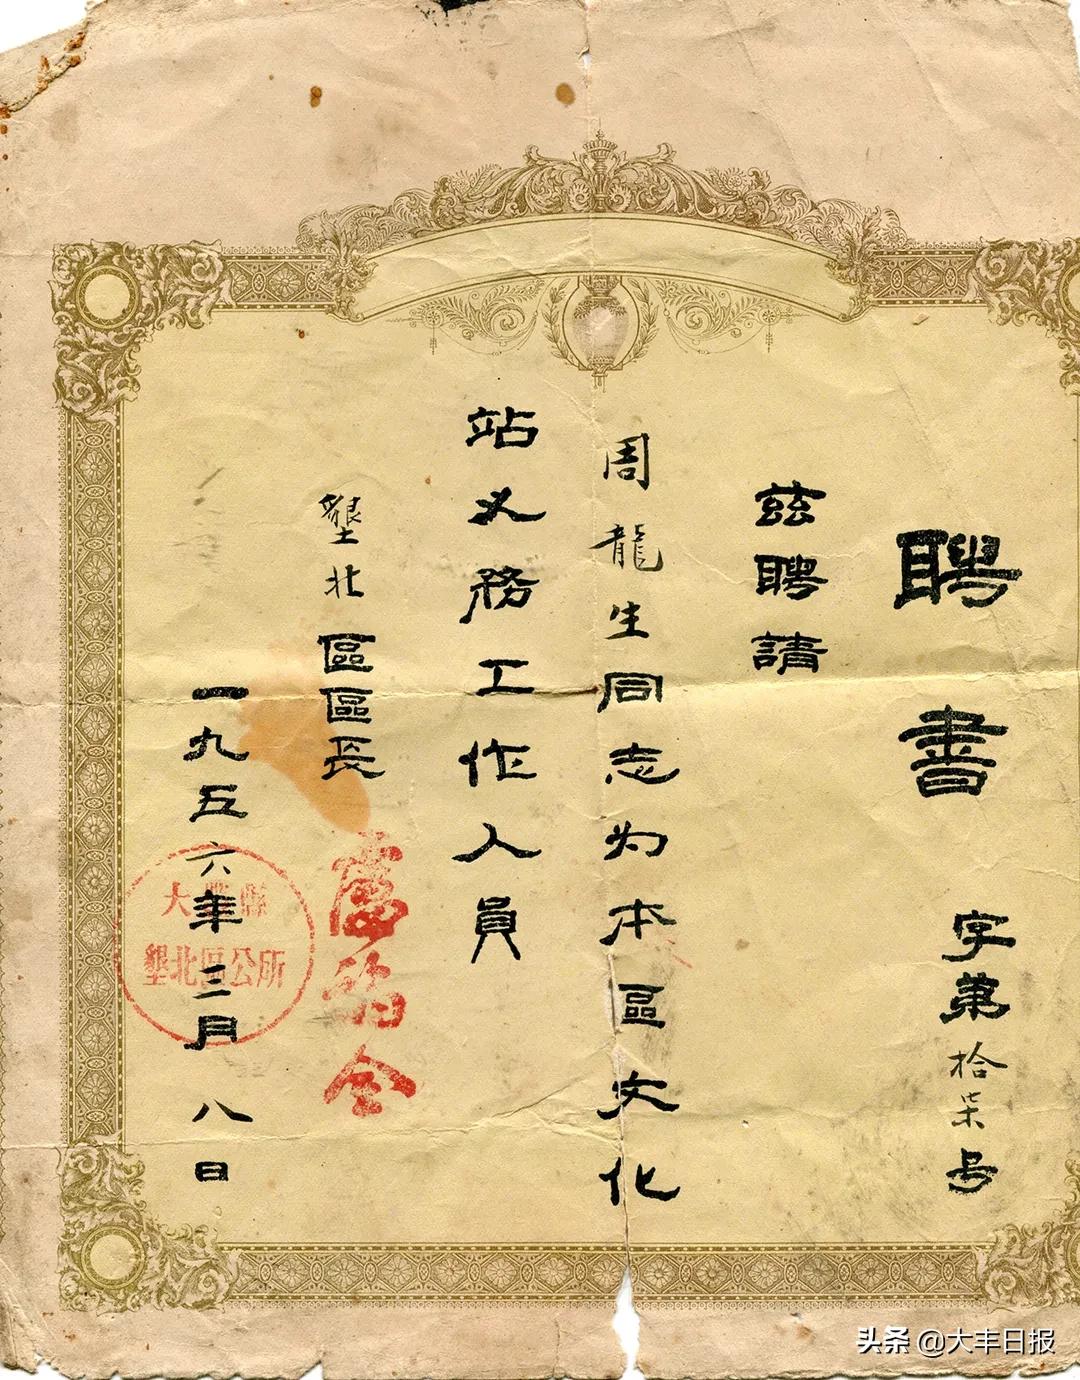 聘書
字第拾柒号
兹聘請
周龍生同志为本區文化
站义務工作人員
墾北區區長
一九五六年三月八日
大豐縣
墾北區公所
头条 @大丰日报